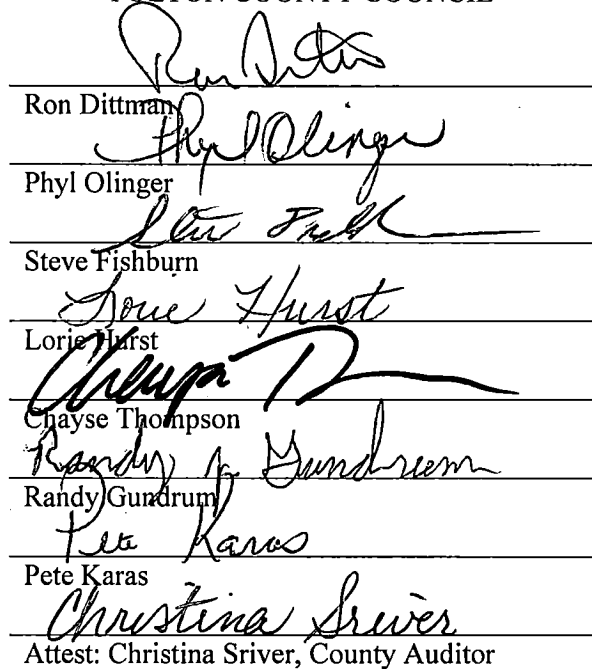 FULTON COUNTY COUNCIL
Ron Dittman
Phyl Olinger
Phyl Olinger
Steve Fishburn
Lorie Hurst
Lorie Hurst
Chayse Thompson
Randy Gundrum
Randy Gundrum
Pete Karas
Pete Karas
Christina Sriver
Attest: Christina Sriver, County Auditor